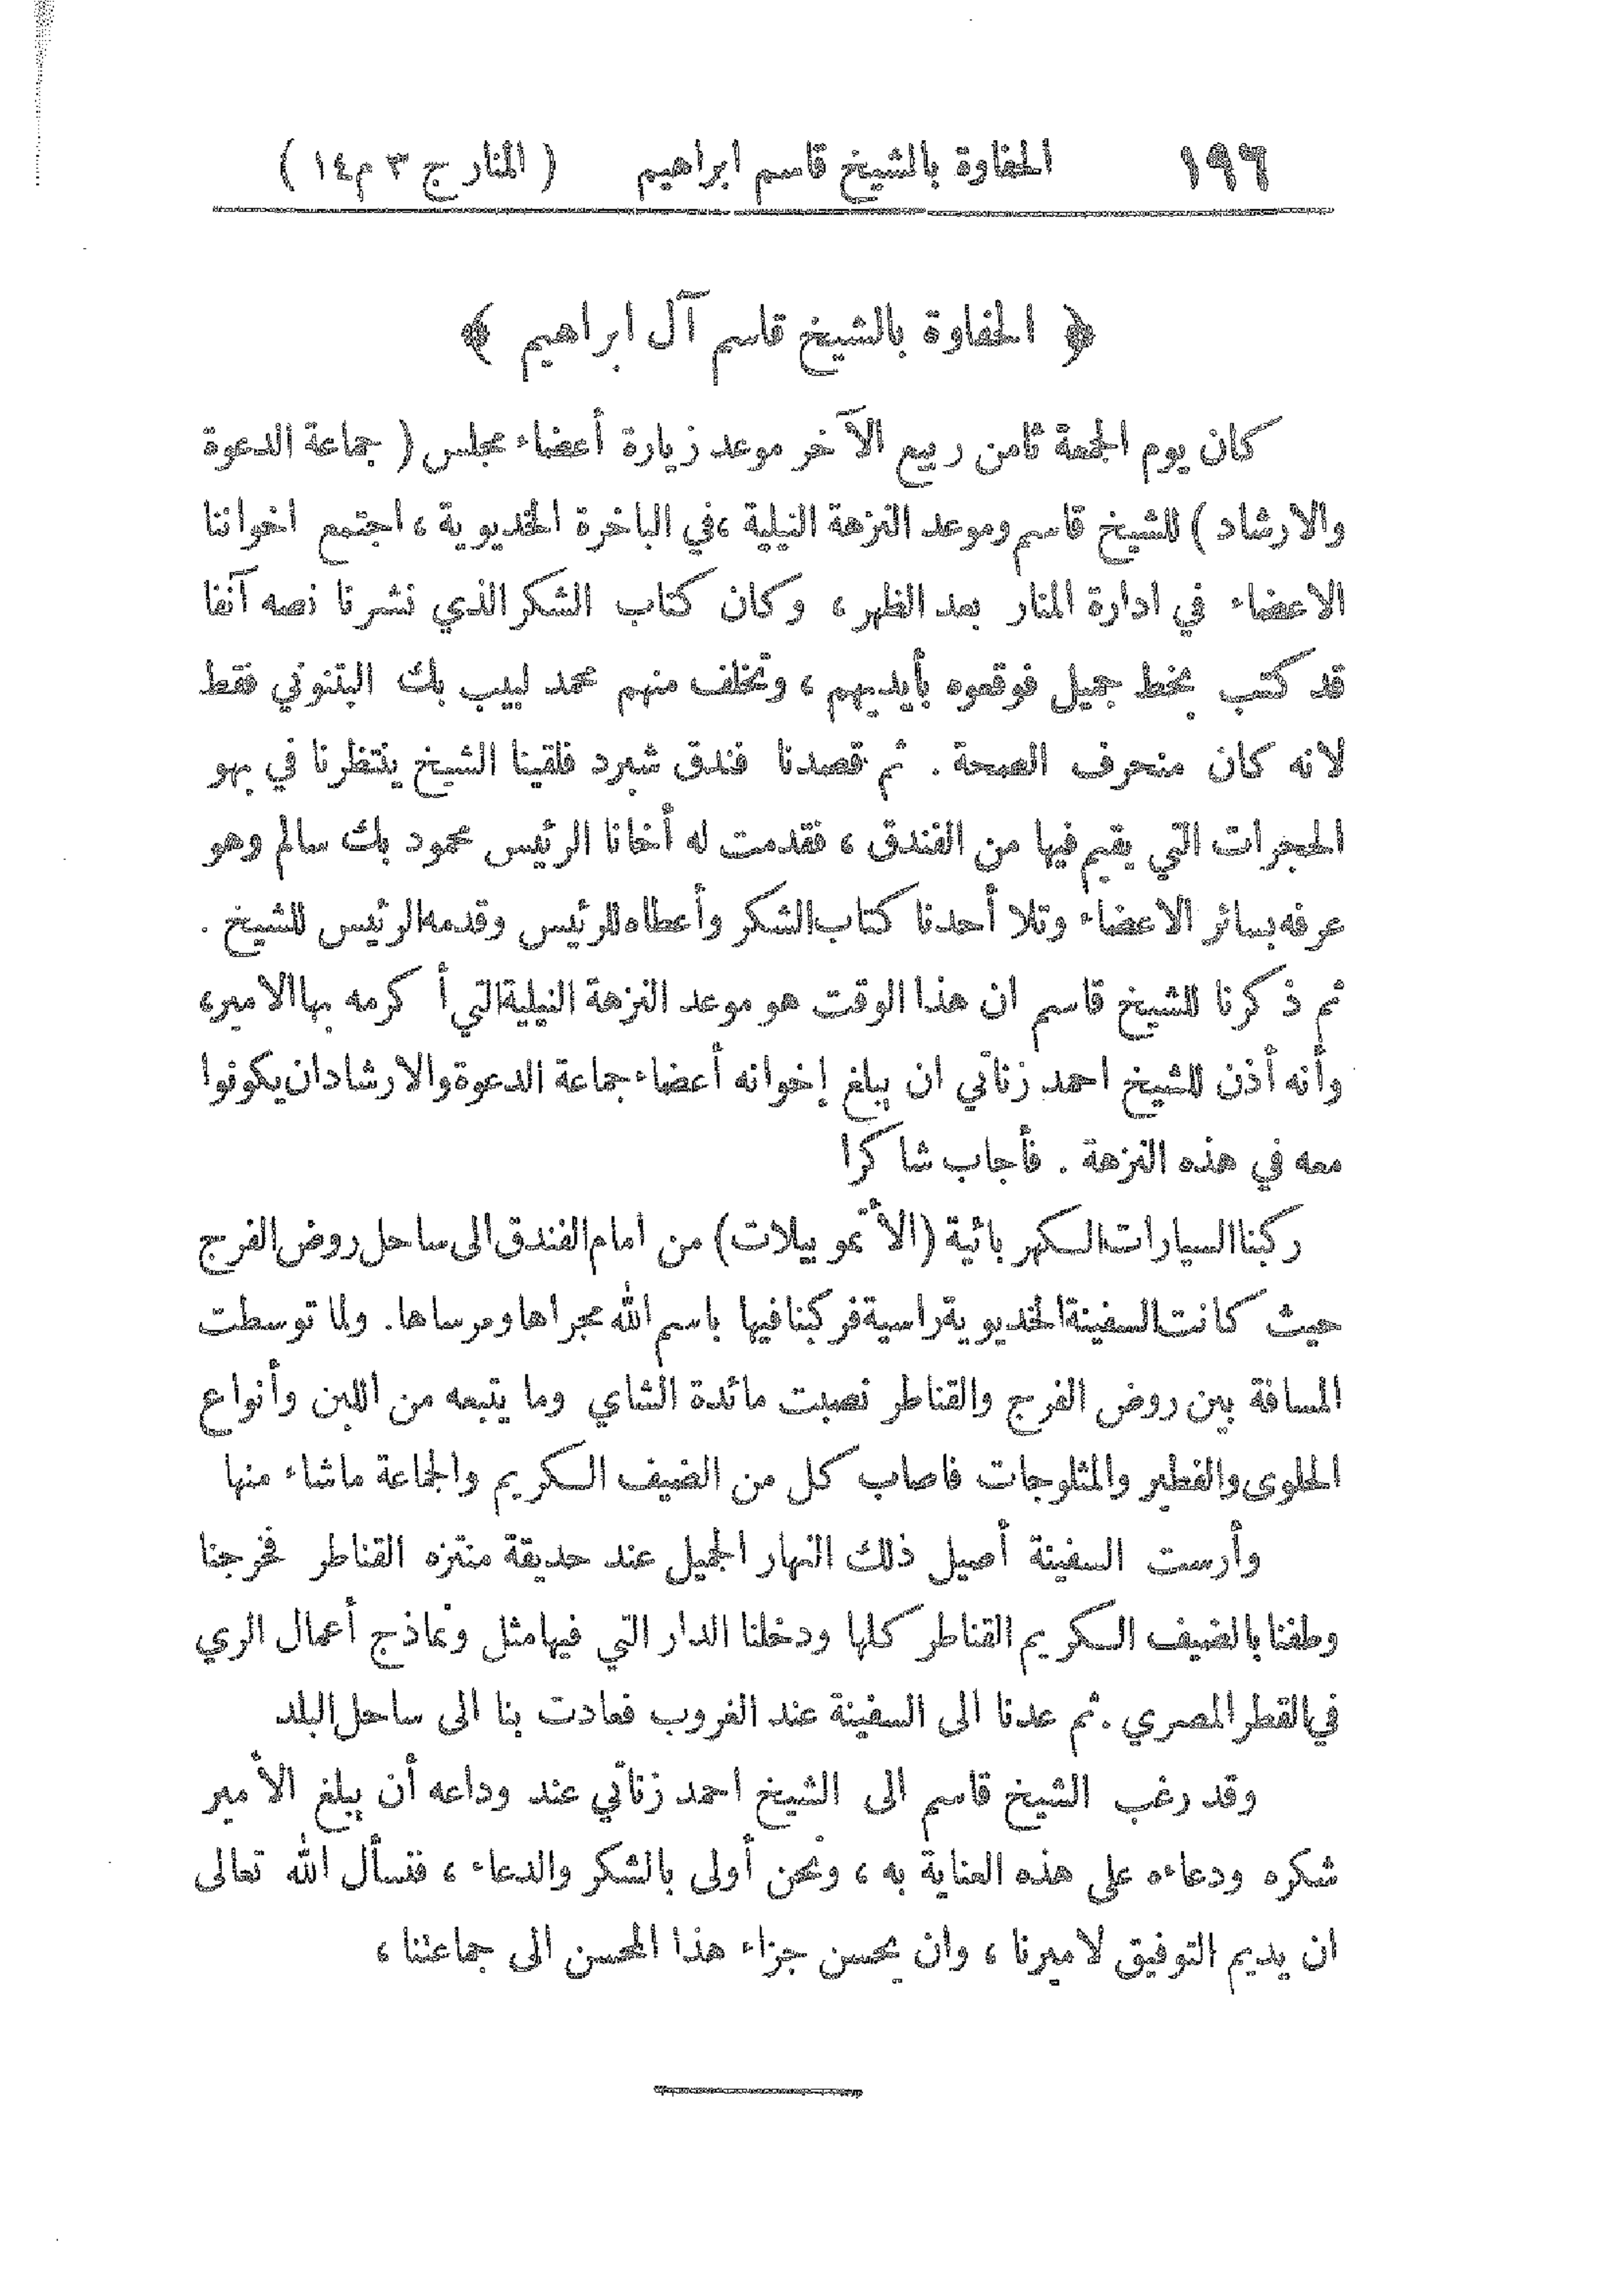 ١٩٦ الحفاوة بالشيخ قاسم ابراهيم ( المنار ج ٣ م ١٤ )
﴿ الحفاوة بالشيخ قاسم آل ابراهيم ﴾
كان يوم الجمعة ثامن ربيع الآخر موعد زيارة أعضاء مجلس ( جماعة الدعوة
والارشاد ) للشيخ قاسم وموعد النزهة النيلية ،في الباخرة الخديوية ، اجتمع اخواننا
الاعضاء في ادارة المنار بعد الظهر ، وكان كتاب الشكر الذي نشرنا نصه آنفا
قد كتب بخط جميل فوقعوه بأيديهم ، وتخلف منهم محمد لبيب بك البتنوني فقط
لانه كان منحرف الصحة . ثم قصدنا فندق شبرد فلقينا الشيخ ينتظرنا في بهو
الحجرات التي يقيم فيها من الفندق ، فقدمت له أخانا الرئيس محمود بك سالم وهو
عرفه بسائر الاعضاء وتلا أحدنا كتاب الشكر وأعطاه للرئيس وقدمه الرئيس للشيخ .
ثم ذكرنا للشيخ قاسم ان هذا الوقت هو موعد النزهة النيلية التي أكرمه بها الامير،
وأنه أذن للشيخ احمد زناتي ان يبلغ إخوانه أعضاء جماعة الدعوة والارشاد ان يكونوا
معه في هذه النزهة . فأجاب شاكرا
ركبنا السيارات الكهربائية (الأتموبيلات) من امام الفندق الى ساحل روض الفرج
حيث كانت السفينة الخديوية راسية فركبنا فيها باسم الله مجراها ومرساها. ولما توسطت
المسافة بين روض الفرج والقناطر نصبت مائدة الشاي وما يتبعه من اللبن وأنواع
الحلوى والفطير والمثلوجات فاصاب كل من الضيف الكريم والجماعة ماشاء منها
وأرست السفينة أصيل ذلك النهار الجميل عند حديقة منتزه القناطر فخرجنا
وطفنا بالضيف الكريم القناطر كلها ودخلنا الدار التي فيها مثل ونماذج أعمال الري
في القطر المصري . ثم عدنا الى السفينة عند الغروب فعادت بنا الى ساحل البلد
وقد رغب الشيخ قاسم الى الشيخ احمد زناتي عند وداعه أن يبلغ الأمير
شكره ودعاءه على هذه العناية به ، ونحن أولى بالشكر والدعاء ، فنسأل الله تعالى
ان يديم التوفيق لاميرنا ، وان يحسن جزاء هذا المحسن الى جماعتنا ،